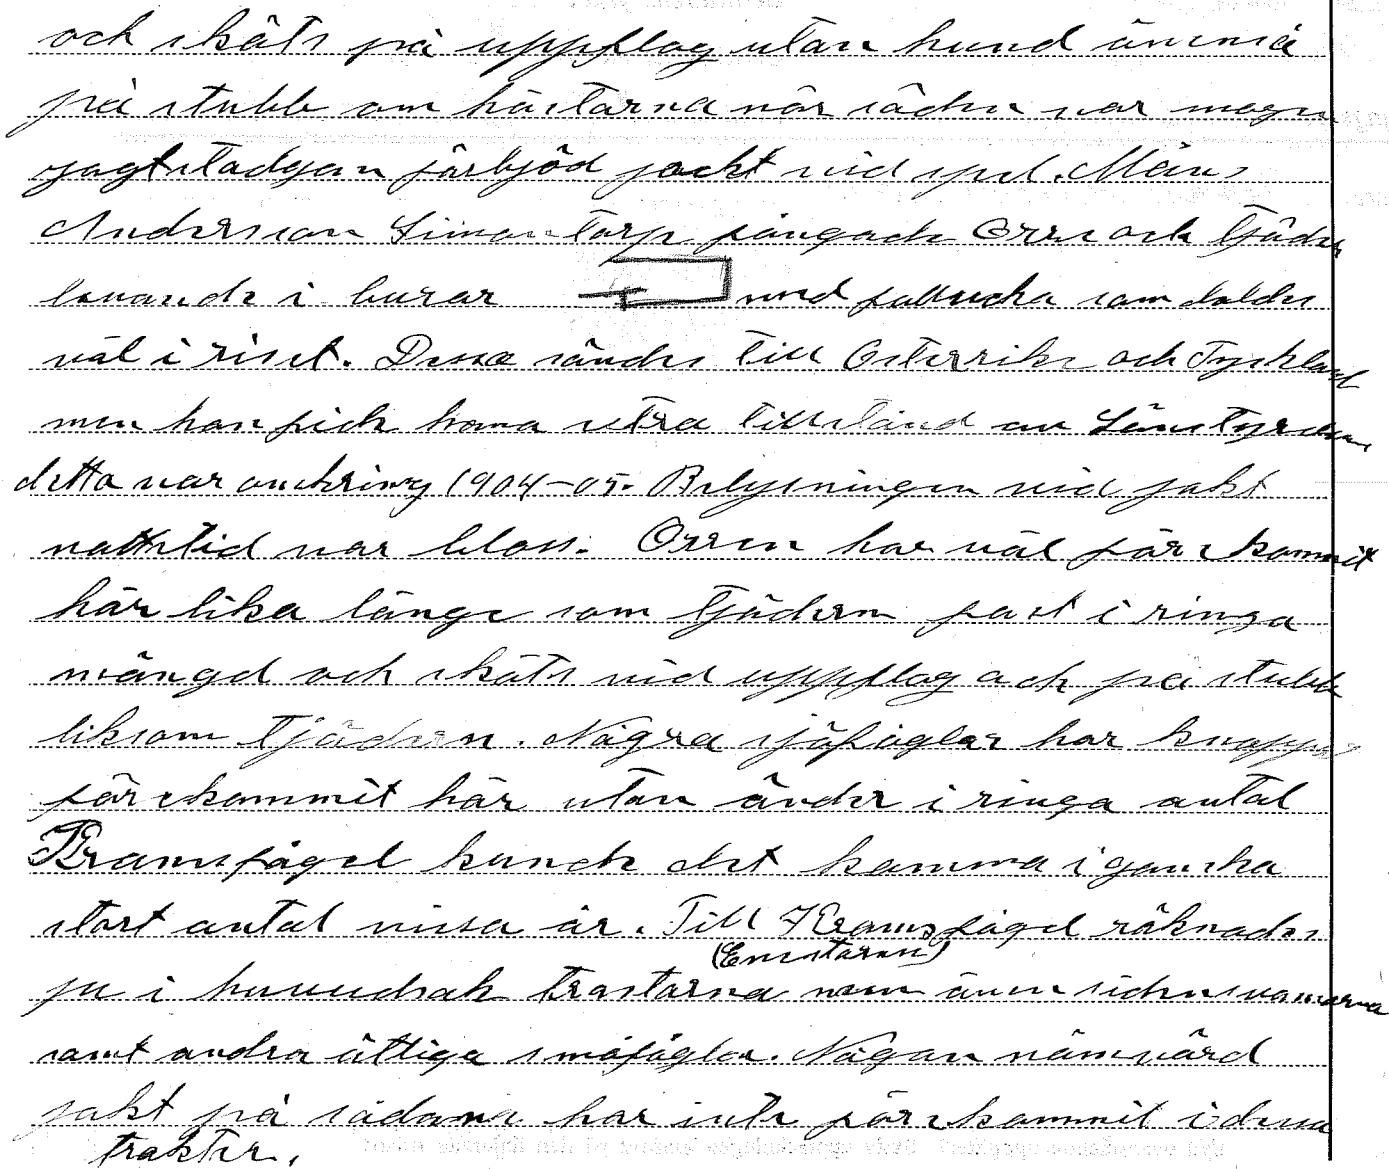 och sköts på uppflog utan hund även så
på stubb om höstarna när säden var mogen
jagtstadgan förbjöd jackt vid spel. Måns
Andersson Simontorp fångade Orre och tjäder
levande i burar med fallucka som doldes
väl i riset. Dessa sändes till Österrike och Tyskland
men han fick hava extra tillstånd av Länstyrelsen
detta var omkring 1904-05. Belysningen vid jakt
nattetid var bloss. Orren har väl förekommit
här lika länge som tjädern fast i ringa
mängd och sköts vid uppflog och på stubb
liksom tjädern. Några sjöfåglar har knappt
förekommit här utan änder i ringa antal
Kramsfågel kunde det komma i ganska
stort antal vissa år. Till Kramsfågel räknades
(Enstaren)
ju i huvudsak trastarna men även sidensvansarna
samt andra ättliga småfåglar. Någon nämnvärd
jakt på sådana har inte förekommit i dessa
trakter.